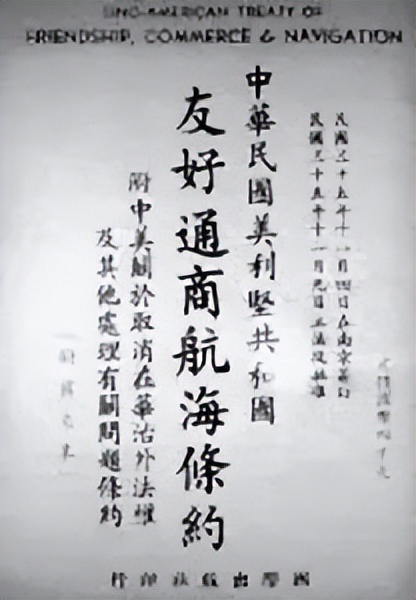 SINO-AMERICAN TREATY OF
FRIENDSHIP, COMMERCE & NAVIGATION
民國三十五年十一月四日在南京簽訂
民國三十五年十一月九日立法院批准
中華民國美利堅共和國
友好通商航海條約
附中美關於取消在華治外法權
及其他處理有關問題條約
國學出版社印行